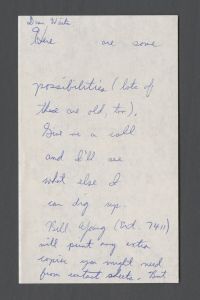 Dear Walter
Here are some
possibilities (lots of
these are old, too).
Give me a call
and I'll see
what else I
can dig up.
Bill Young (Ext. 7411)
will print any extra
copies you might need
from contact sheets. But